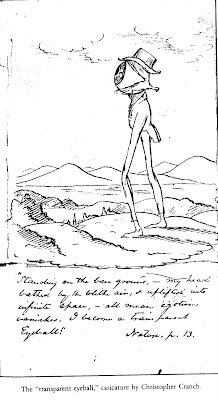 "Standing on the bare ground, — my head
bathed by the blithe air, & uplifted into
infinite space, — all mean egotism
vanishes. I become a transparent
Eyeball."    Nature, p. 13.
The "transparent eyeball," caricature by Christopher Cranch.